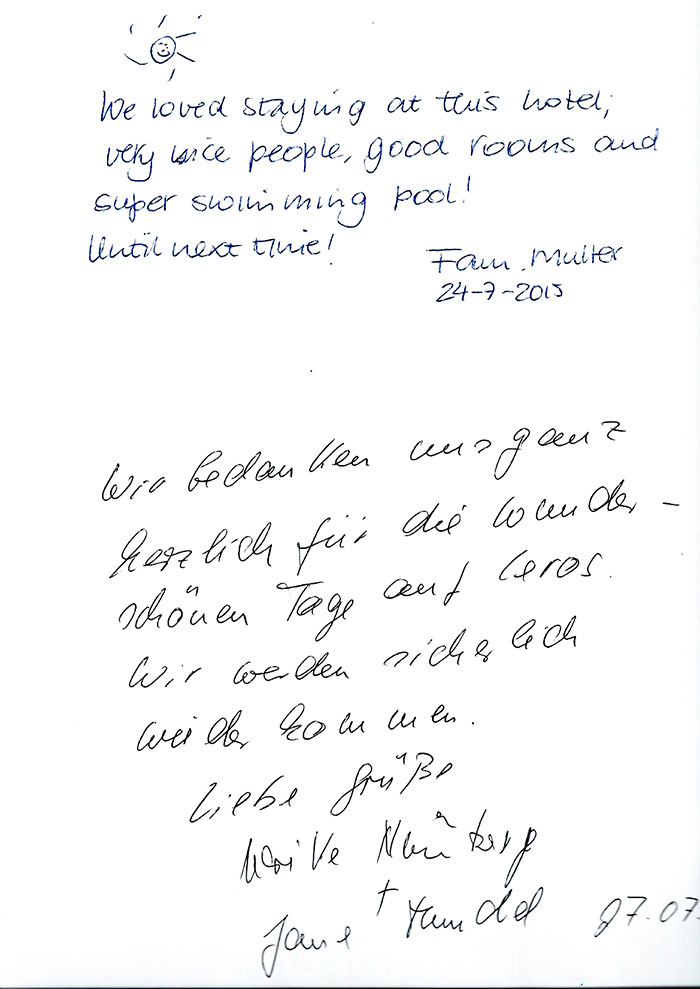 We loved staying at this hotel,
very nice people, good rooms and
super swimming pool!
Until next time!
Fam. Mulier
24-7-2015
Wir bedanken uns ganz
herzlich für die wunder-
schönen Tage auf Leros.
Wir werden sicherlich
wieder kommen.
Liebe Grüße
+
27.07.